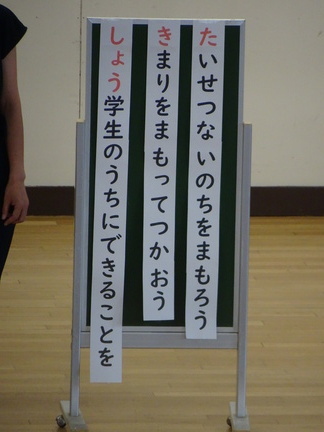 たいせつないのちをまもろう
きまりをまもってつかおう
しょう学生のうちにできることを